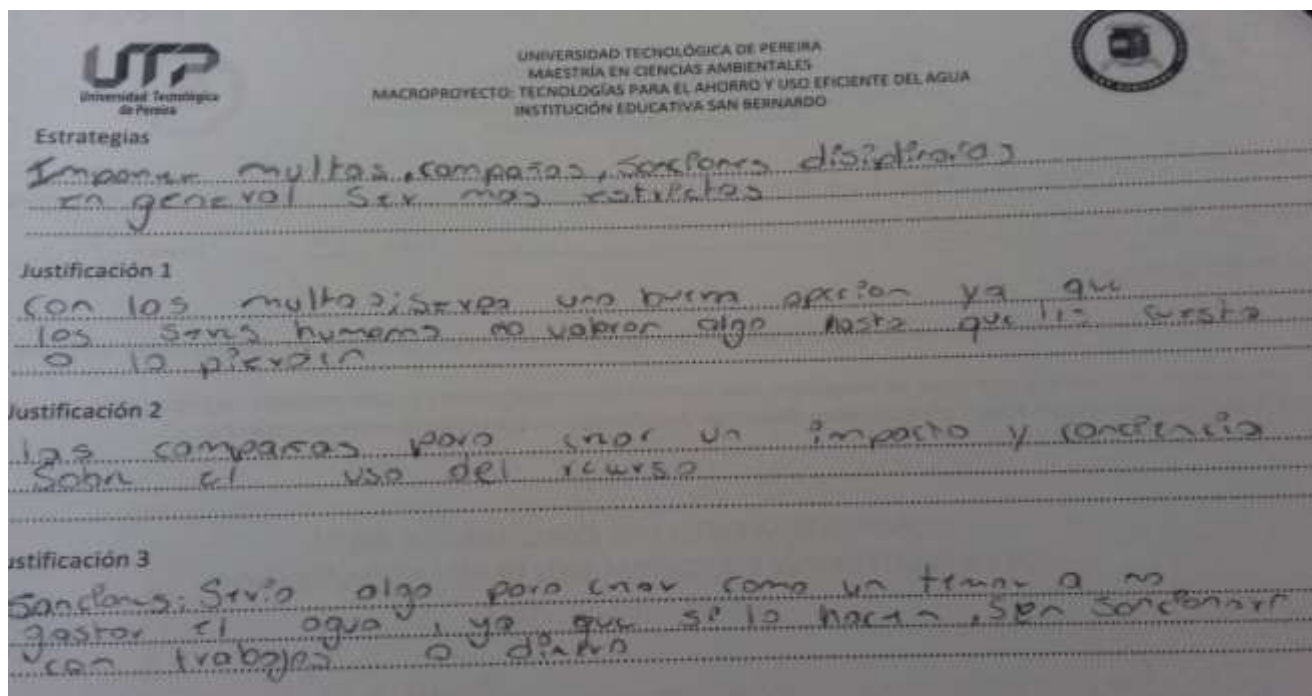 UTP
Universidad Tecnológica
de Pereira
UNIVERSIDAD TECNOLÓGICA DE PEREIRA
MAESTRÍA EN CIENCIAS AMBIENTALES
MACROPROYECTO: TECNOLOGÍAS PARA EL AHORRO Y USO EFICIENTE DEL AGUA
INSTITUCIÓN EDUCATIVA SAN BERNARDO
Estrategias
Imponer multas, campañas, sanciones
en general ser mas estrictos
Justificación 1
con las multas; una buena opcion ya que
los seres humanos no valoran algo hasta que les cuesta
o lo pierden
Justificación 2
las campañas para crear un impacto y conciencia
sobre el uso del recurso
stificación 3
Sanciones: Seria algo para crear como un temor a no
gastar el agua, ya que si lo hacen, sean
con trabajos o dinero